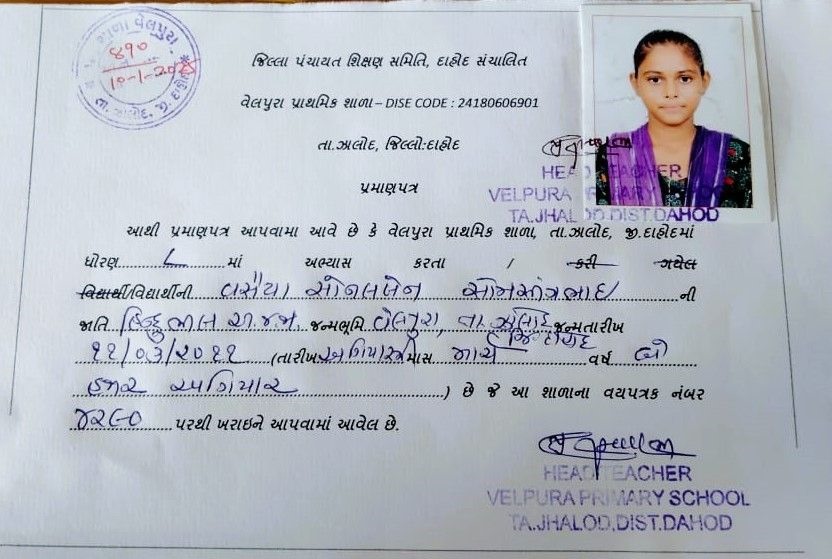 શાળા વેલપુરા
૪૧૦
તા. ઝાલોદ, જી. દાહોદ
જિલ્લા પંચાયત શિક્ષણ સમિતિ, દાહોદ સંચાલિત
વેલપુરા પ્રાથમિક શાળા – DISE CODE : 24180606901
તા.ઝાલોદ, જિલ્લો:દાહોદ
પ્રમાણપત્ર
HEAD TEACHER
VELPURA PRIMARY SCHOOL
TA.JHALOD.DIST.DAHOD
આથી પ્રમાણપત્ર આપવામા આવે છે કે વેલપુરા પ્રાથમિક શાળા, તા.ઝાલોદ, જી.દાહોદમાં
ધોરણ ૮ માં અભ્યાસ કરતા / કરી ગયેલ
વિદ્યાર્થી/વિદ્યાર્થીની વસૈયા સોનલબેન ની
જાતિ હિન્દુ ભીલ અ.જ.જા જન્મભૂમિ વેલપુરા, તા. ઝાલોદ જન્મતારીખ
જિ. દાહોદ
૧૧/૦૩/૨૦૧૧ (તારીખ અગિયાર માસ માર્ચ વર્ષ બે
હજાર અગિયાર ) છે જે આ શાળાના વયપત્રક નંબર
૪૨૯૦ પરથી ખરાઇને આપવામાં આવેલ છે.
HEAD TEACHER
VELPURA PRIMARY SCHOOL
TA.JHALOD.DIST.DAHOD